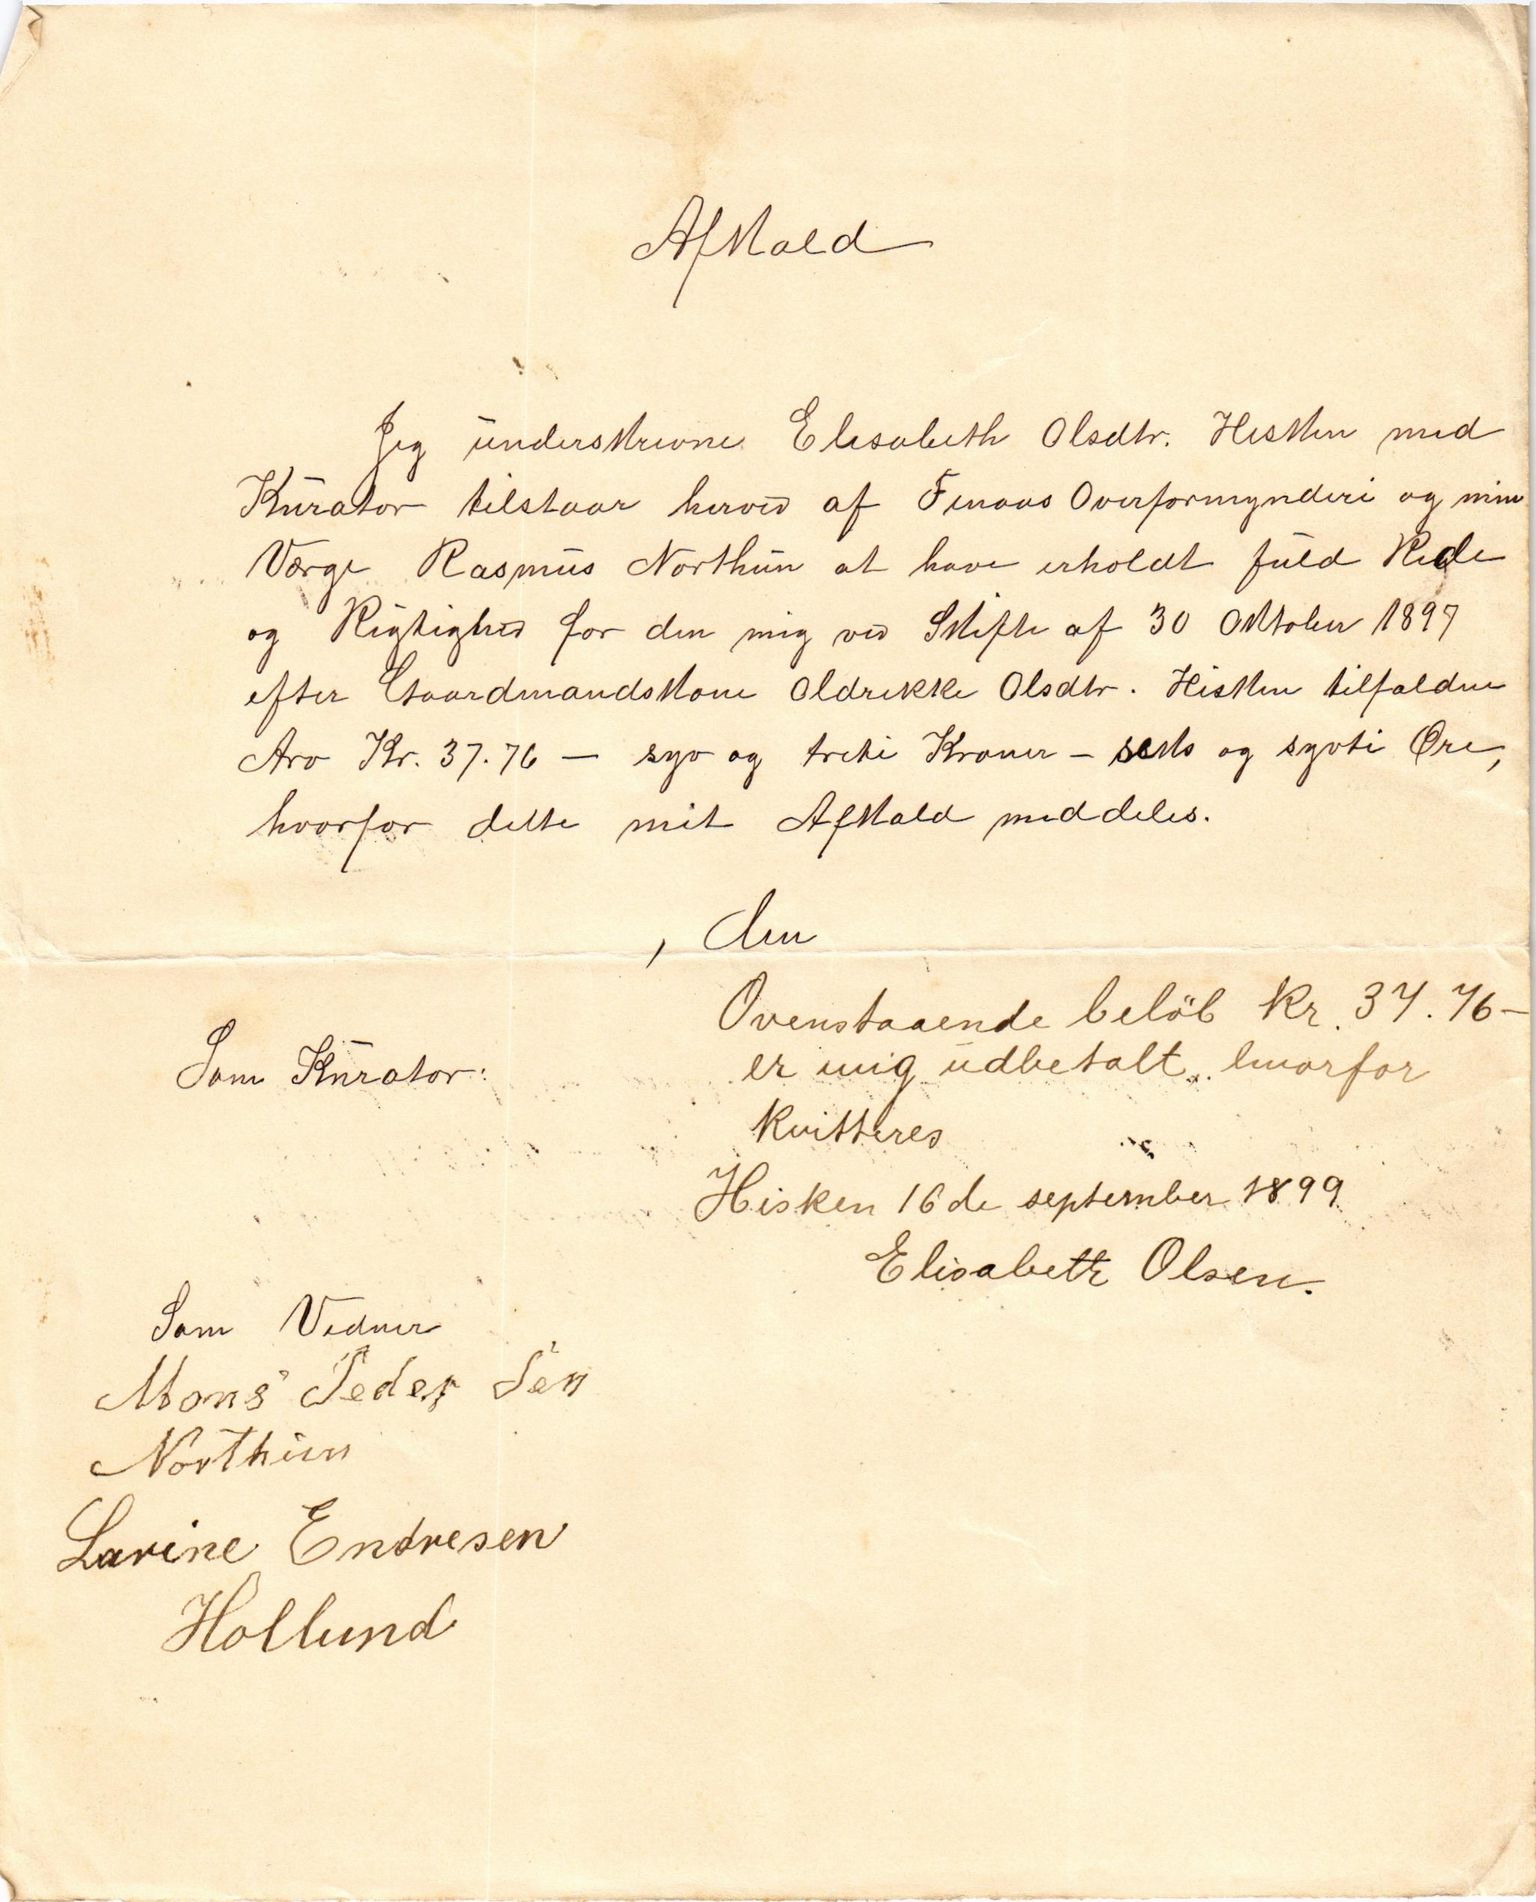 Afkald
Jeg underskrevne Elisabeth Olsdtr. Hisken med
Kurator tilstaar herved af Finaas Overformynderi og min
Værge Rasmus Northun at have erholdt fuld Rede
og Rigtighed for den mig ved Skifte af 30 Oktober 1897
efter Gaardmandskone Oldrikke Olsdtr. Hisken tilfaldne
Arv Kr. 37.76 — syv og treti Kroner – seks og sytti Øre,
hvorfor dette mit Afkald meddeles.
, den
Ovenstaaende beløb Kr. 37.76 –
er mig udbetalt, hvorfor
kvitteres
Hisken 16de september 1899
Elisabeth Olsen.
Som Kurator:
Som Vidner
Mons Peder Sen
Northun
Larine Endresen
Hollund